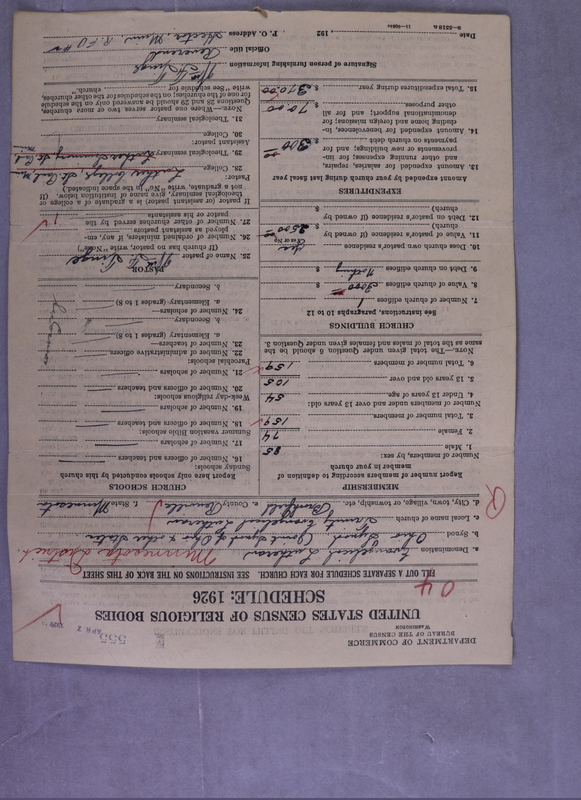 DEPARTMENT OF COMMERCE
BUREAU OF THE CENSUS
WASHINGTON
555
APR 7
UNITED STATES CENSUS OF RELIGIOUS BODIES
SCHEDULE: 1926
04
FILL OUT A SEPARATE SCHEDULE FOR EACH CHURCH. SEE INSTRUCTIONS ON THE BACK OF THIS SHEET
a. Denomination Evangelical Lutheran Minnesota District.
b. Synod Ohio Synod (Joint Synod of Ohio & other States
c. Local name of church Evangelical Lutheran
d. City, town, village, or township, etc. Brookfield e. County Renville f. State Minnesota
MEMBERSHIP
Report number of members according to definition of
member in your church
Number of members, by sex:
1. Male 85
2. Female 74
3. Total number of members 159
Number of members under and over 13 years old:
4. Under 13 years of age 54
5. 13 years old and over 105
6. Total number of members 159
NOTE.—The total given under Question 6 should be the
same as the total of males and females given under Question 3.
CHURCH BUILDINGS
See instructions, paragraphs 10 to 12
7. Number of church edifices 1
8. Value of church edifices $ 3000
9. Debt on church edifices $ Nothing
10. Does church own pastor's residence Yes
(Yes or No)
11. Value of pastor's residence (if owned by
church) $ 2500
12. Debt on pastor's residence (if owned by
church) $
EXPENDITURES
Amount expended by your church during last fiscal year
13. Amount expended for salaries, repairs,
and other running expenses; for im-
provements or new buildings; and for
payments on church debt $ 300
14. Amount expended for benevolences, in-
cluding home and foreign missions; for
denominational support; and for all
other purposes $ 70.00
15. Total expenditures during year $ 370.00
CHURCH SCHOOLS
Report here only schools conducted by this church
Sunday schools:
16. Number of officers and teachers
17. Number of scholars
Summer vacation Bible schools:
18. Number of officers and teachers
19. Number of scholars
Week-day religious schools:
20. Number of officers and teachers
21. Number of scholars
Parochial schools:
22. Number of administrative officers
23. Number of teachers—
a. Elementary (grades 1 to 8)
b. Secondary
24. Number of scholars—
a. Elementary (grades 1 to 8)
b. Secondary
PASTOR
25. Name of pastor
(If church has no pastor, write "None")
26. Number of ordained ministers, if any, em-
ployed as assistant pastors
27. Number of other churches served by the
pastor or his assistants 1
If pastor (or assistant pastor) is a graduate of a college or
theological seminary, give name of institution below. (If
not a graduate, write "No" in the space indicated.)
Pastor:
28. College Luther College St. Paul
29. Theological seminary Luther Seminary St. Paul
Assistant pastor:
30. College
31. Theological seminary
NOTE.—Where one pastor serves two or more churches,
Questions 28 and 29 should be answered only on the schedule
for one of the churches; on the schedules for the other churches,
write "See schedule for church."
Signature of person furnishing information
Official title Reverend
P. O. Address Hector, Minn. R.F.D.
Date , 192
11—9051
8—5218 a